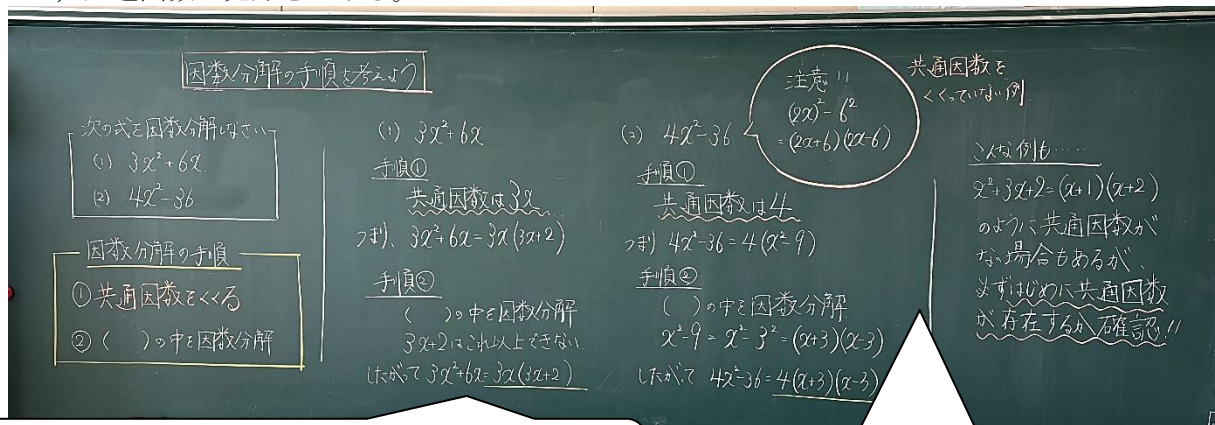 因数分解の手順を考えよう
次の式を因数分解しなさい
(1) 3x²+6x
(2) 4x²-36
因数分解の手順
① 共通因数をくくる
② ( )の中を因数分解
(1) 3x²+6x
手順①
共通因数は3x
つまり、3x²+6x=3x(3x+2)
手順②
( )の中を因数分解
3x+2はこれ以上できない
したがって 3x²+6x=3x(3x+2)
(2) 4x²-36
手順①
共通因数は4
つまり 4x²-36=4(x²-9)
手順②
( )の中を因数分解
x²-9=x²-3²=(x+3)(x-3)
したがって 4x²-36=4(x+3)(x-3)
注意!!
(2x)²-6²
=(2x+6)(2x-6)
共通因数を
くくっていない例
こんな例も……
x²+3x+2=(x+1)(x+2)
のように共通因数が
ない場合もあるが、
必ずはじめに共通因数
が存在するか確認!!